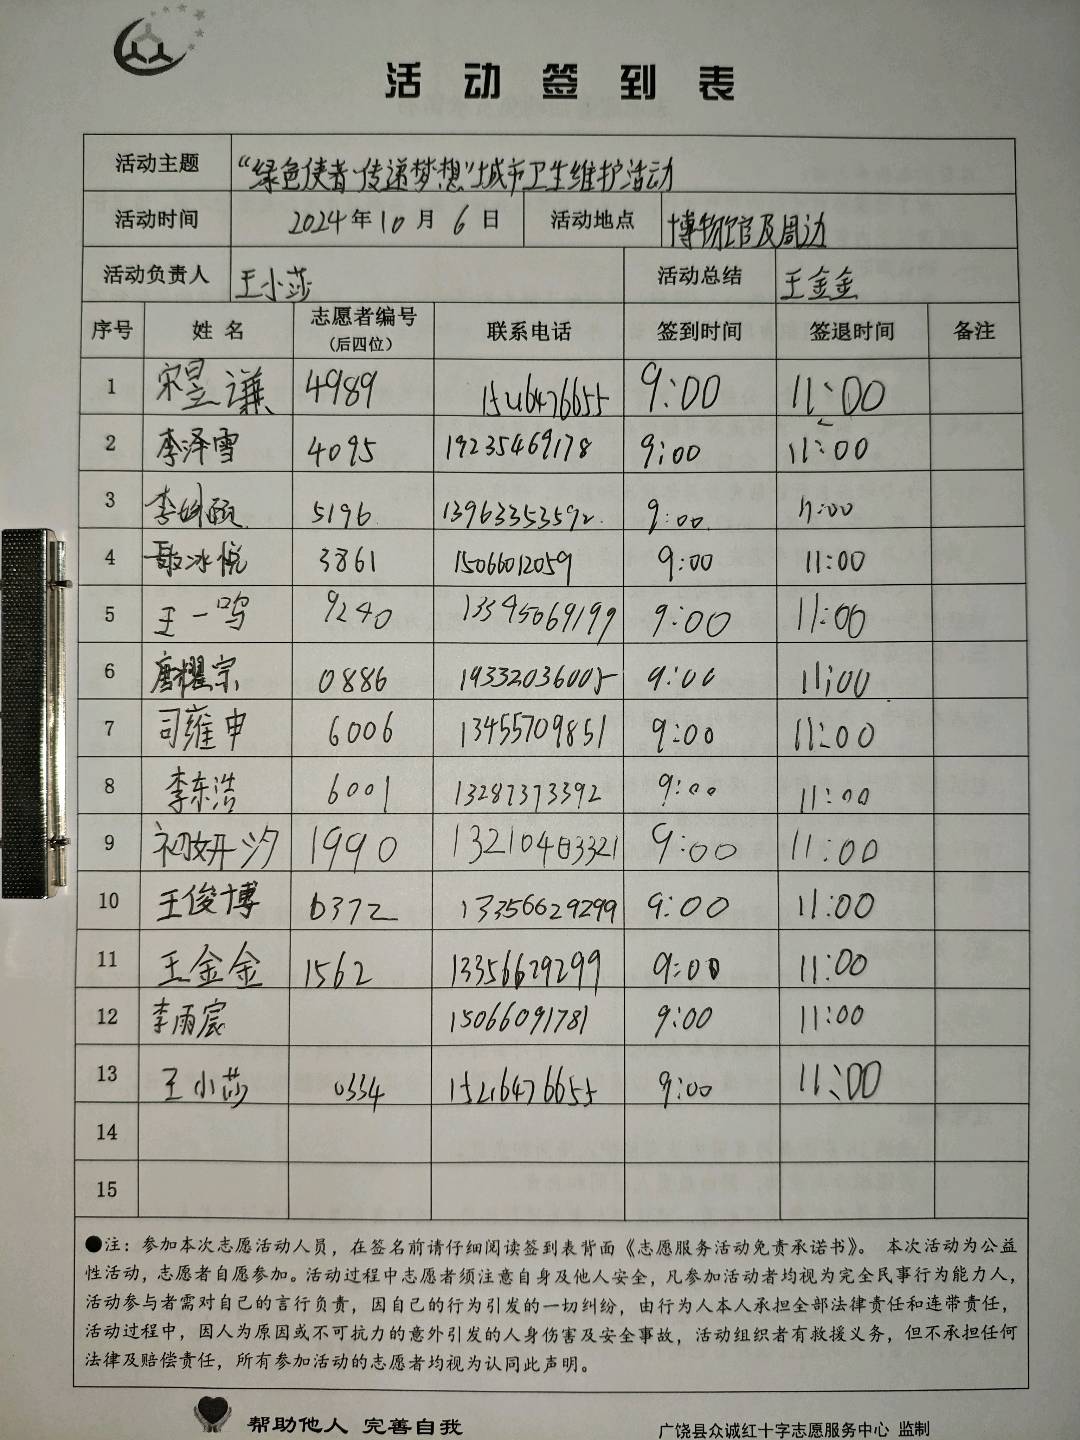 活动签到表
活动主题 “绿色使者·传递梦想”城市卫生维护活动
活动时间 2024年10月6日 活动地点 博物馆及周边
活动负责人 王小莎 活动总结 王金金
序号 姓名 志愿者编号（后四位） 联系电话 签到时间 签退时间 备注
1 宋昱谦 4989 15216476655 9:00 11:00
2 李泽雪 4095 19235469178 9:00 11:00
3 李 5196 13963353592 9:00 11:00
4 冰悦 3861 15066012059 9:00 11:00
5 王一鸣 9240 13395069199 9:00 11:00
6 唐耀宗 0886 19332036005 9:00 11:00
7 司雍申 6006 13455709851 9:00 11:00
8 李东浩 6001 13287373392 9:00 11:00
9 初妍汐 1990 13210403321 9:00 11:00
10 王俊博 0372 13356629299 9:00 11:00
11 王金金 1562 13356629299 9:00 11:00
12 李雨宸 15066091781 9:00 11:00
13 王小莎 0334 15216476655 9:00 11:00
14
15
●注：参加本次志愿活动人员，在签名前请仔细阅读签到表背面《志愿服务活动免责承诺书》。 本次活动为公益
性活动，志愿者自愿参加。活动过程中志愿者须注意自身及他人安全，凡参加活动者均视为完全民事行为能力人，
活动参与者需对自己的言行负责，因自己的行为引发的一切纠纷，由行为人本人承担全部法律责任和连带责任，
活动过程中，因人为原因或不可抗力的意外引发的人身伤害及安全事故，活动组织者有救援义务，但不承担任何
法律及赔偿责任，所有参加活动的志愿者均视为认同此声明。
帮助他人 完善自我
广饶县众诚红十字志愿服务中心 监制